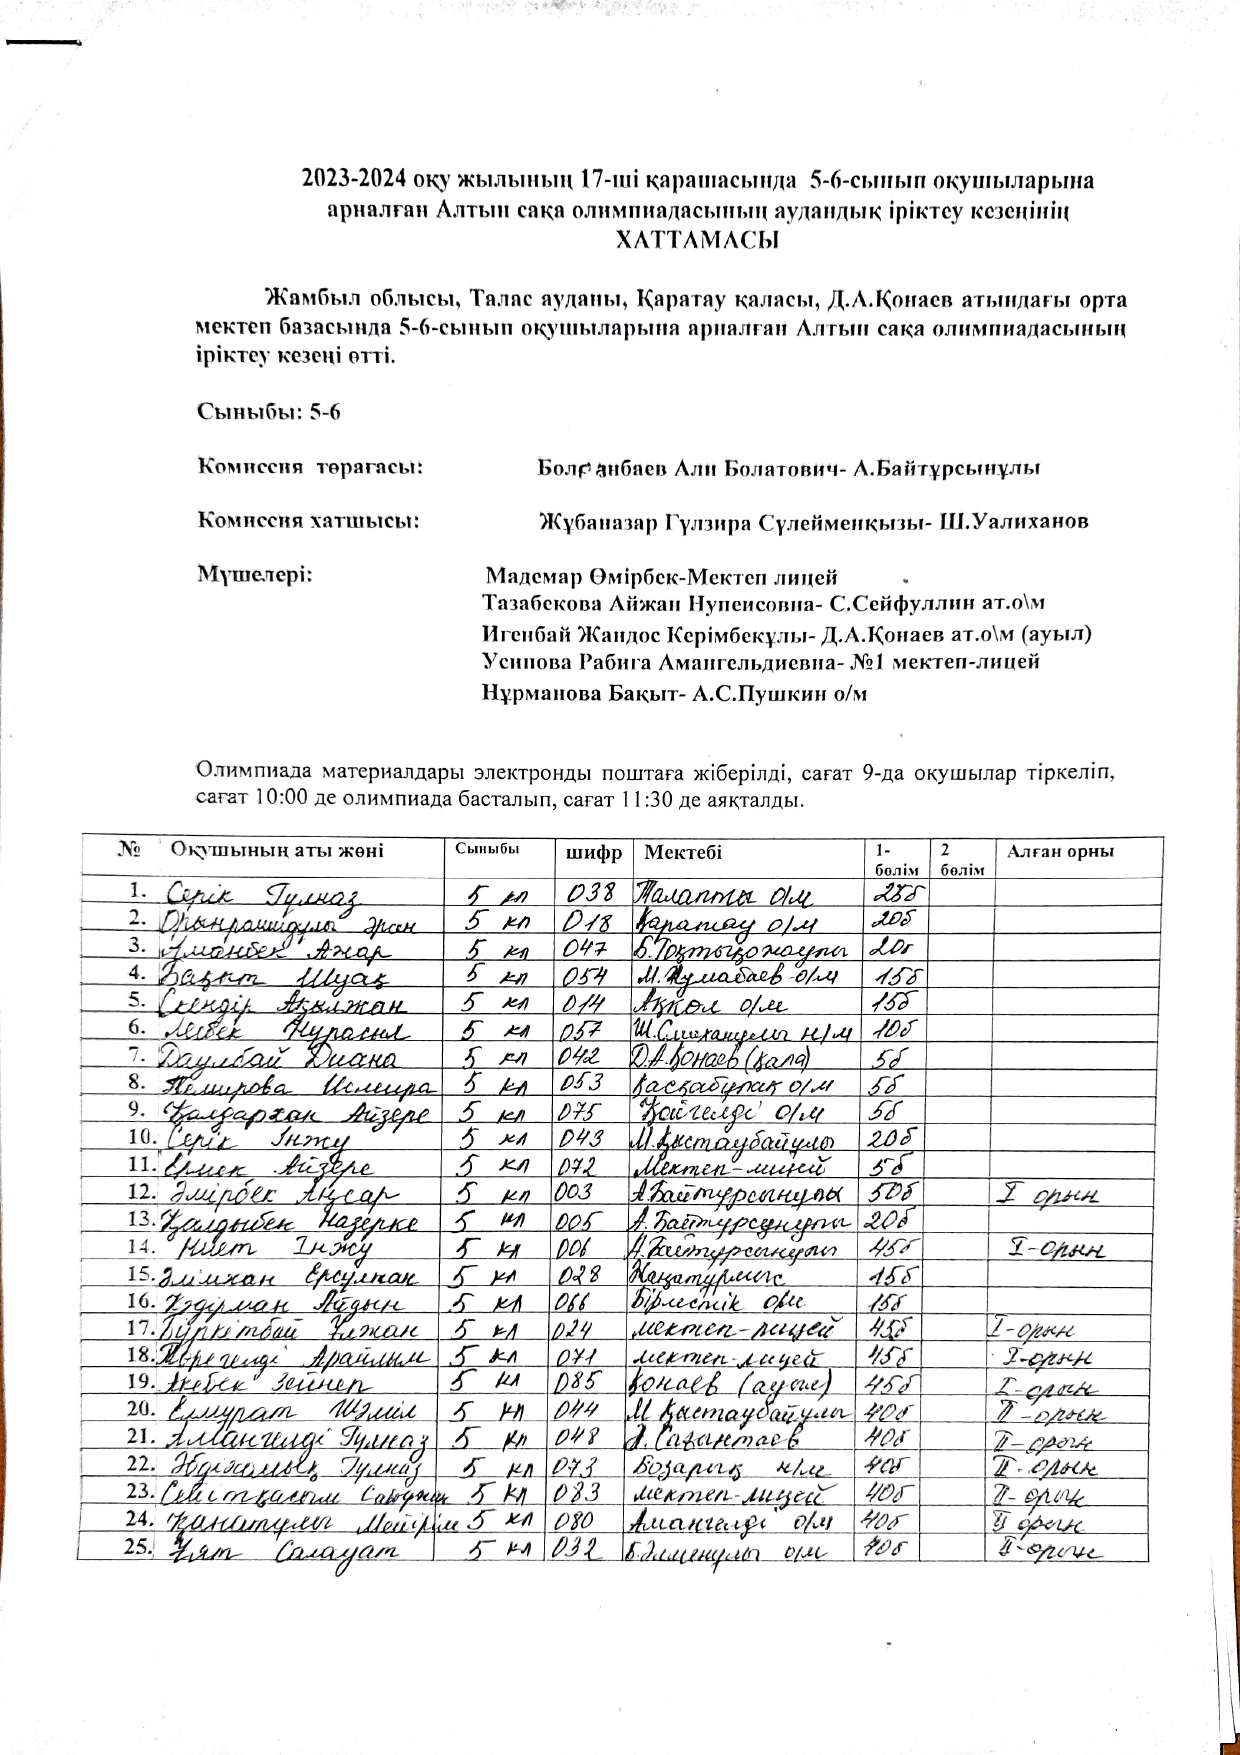 2023-2024 оқу жылының 17-ші қарашасында 5-6-сынып оқушыларына
арналған Алтын сақа олимпиадасының аудандық іріктеу кезеңінің
ХАТТАМАСЫ
Жамбыл облысы, Талас ауданы, Қаратау қаласы, Д.А.Қонаев атындағы орта
мектеп базасында 5-6-сынып оқушыларына арналған Алтын сақа олимпиадасының
іріктеу кезеңі өтті.
Сыныбы: 5-6
Комиссия төрағасы: Али Болатович- А.Байтұрсынұлы
Комиссия хатшысы: Жұбаназар Гүлзира Сүлейменқызы- Ш.Уалиханов
Мүшелері: Мадемар Өмірбек-Мектеп лицей
Тазабекова Айжан Нупеисовна- С.Сейфуллин ат.о\м
Игенбай Жандос Керімбекұлы- Д.А.Қонаев ат.о\м (ауыл)
Усипова Рабига Амангельдиевна- №1 мектеп-лицей
Нұрманова Бақыт- А.С.Пушкин о/м
Олимпиада материалдары электронды поштаға жіберілді, сағат 9-да оқушылар тіркеліп,
сағат 10:00 де олимпиада басталып, сағат 11:30 де аяқталды.
№ Оқушының аты жөні Сыныбы шифр Мектебі 1-бөлім 2 бөлім Алған орны
1. Серік Гүлназ 5 кл 038 Талапты о/м 25б
2. 5 кл 018 Қаратау о/м 20б
3. Аманбек Ажар 5 кл 047 Б.Тоқтықожаұлы 20б
4. Бақыт Шуақ 5 кл 054 М.Жумабаев о/м 15б
5. Скендір Ақылжан 5 кл 014 Ақкөл о/м 15б
6. Нурасыл 5 кл 057 Ш.Смаханулы н/м 10б
7. Даулбай Диана 5 кл 042 Д.А.Қонаев (қала) 5б
8. Темирова 5 кл 053 Қасқабулақ о/м 5б
9. Қалдархан Айзере 5 кл 075 Көшелді о/м 5б
10. Серік Інжу 5 кл 043 М.Қыстаубайұлы 20б
11. Ермек Айзере 5 кл 072 Мектеп-лицей 5б
12. Әмірбек Аңсар 5 кл 003 А.Байтурсынулы 50б I орын
13. Қалдыбек Назерке 5 кл 005 А.Байтурсынулы 20б
14. Ниет Інжу 5 кл 006 А.Байтурсынулы 45б I-орын
15. Әлімхан Ерсултан 5 кл 028 Жаңатурмыс 15б
16. Қәдірман Айдын 5 кл 066 Бірлестік о/м 15б
17. Бүркітбай Ұлжан 5 кл 024 мектеп-лицей 45б I-орын
18. Төрегелді Арайлым 5 кл 071 мектеп-лицей 45б I-орын
19. Әкебек Зейнеп 5 кл 085 Қонаев (ауыл) 45б I-орын
20. Елмурат Шәміл 5 кл 044 М Қыстаубайұлы 40б II-орын
21. Амангелді Гүлназ 5 кл 048 А. Сағынтаев 40б II-орын
22. Әбдіжамық Гүлназ 5 кл 073 Бозарық н/м 40б II-орын
23. Сейітқасым 5 кл 083 мектеп-лицей 40б II-орын
24. Қанатұлы Мейірім 5 кл 080 Амангелді о/м 40б II орын
25. Ұят Салауат 5 кл 032 Б.Әлменұлы о/м 40б II-орын